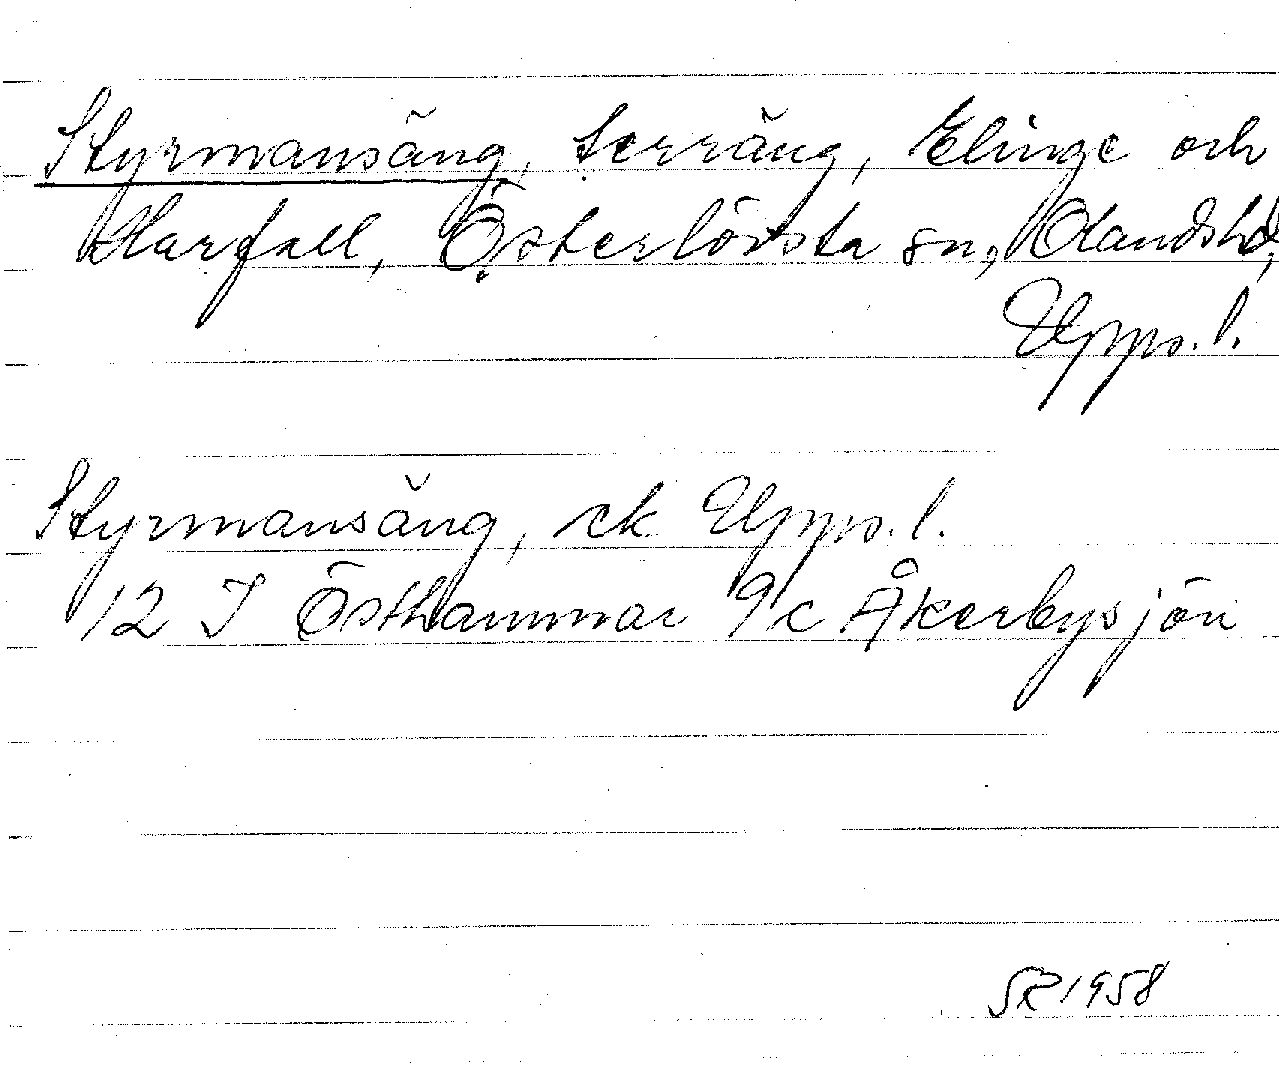 Styrmansäng, terräng, Elinge och
Harfall, Österlövsta sn, Olandshd,
Upps. l.
Styrmansäng, ek Upps. l.
12 I Östhammar 9c Åkerbysjön
SR 1958